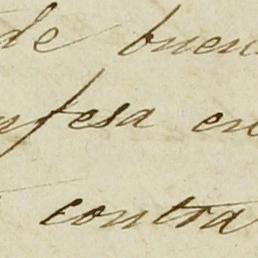 de buen
fesa en
contra